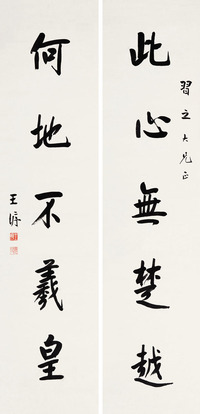 此心無楚越
習之大兄正
何地不羲皇
王濟